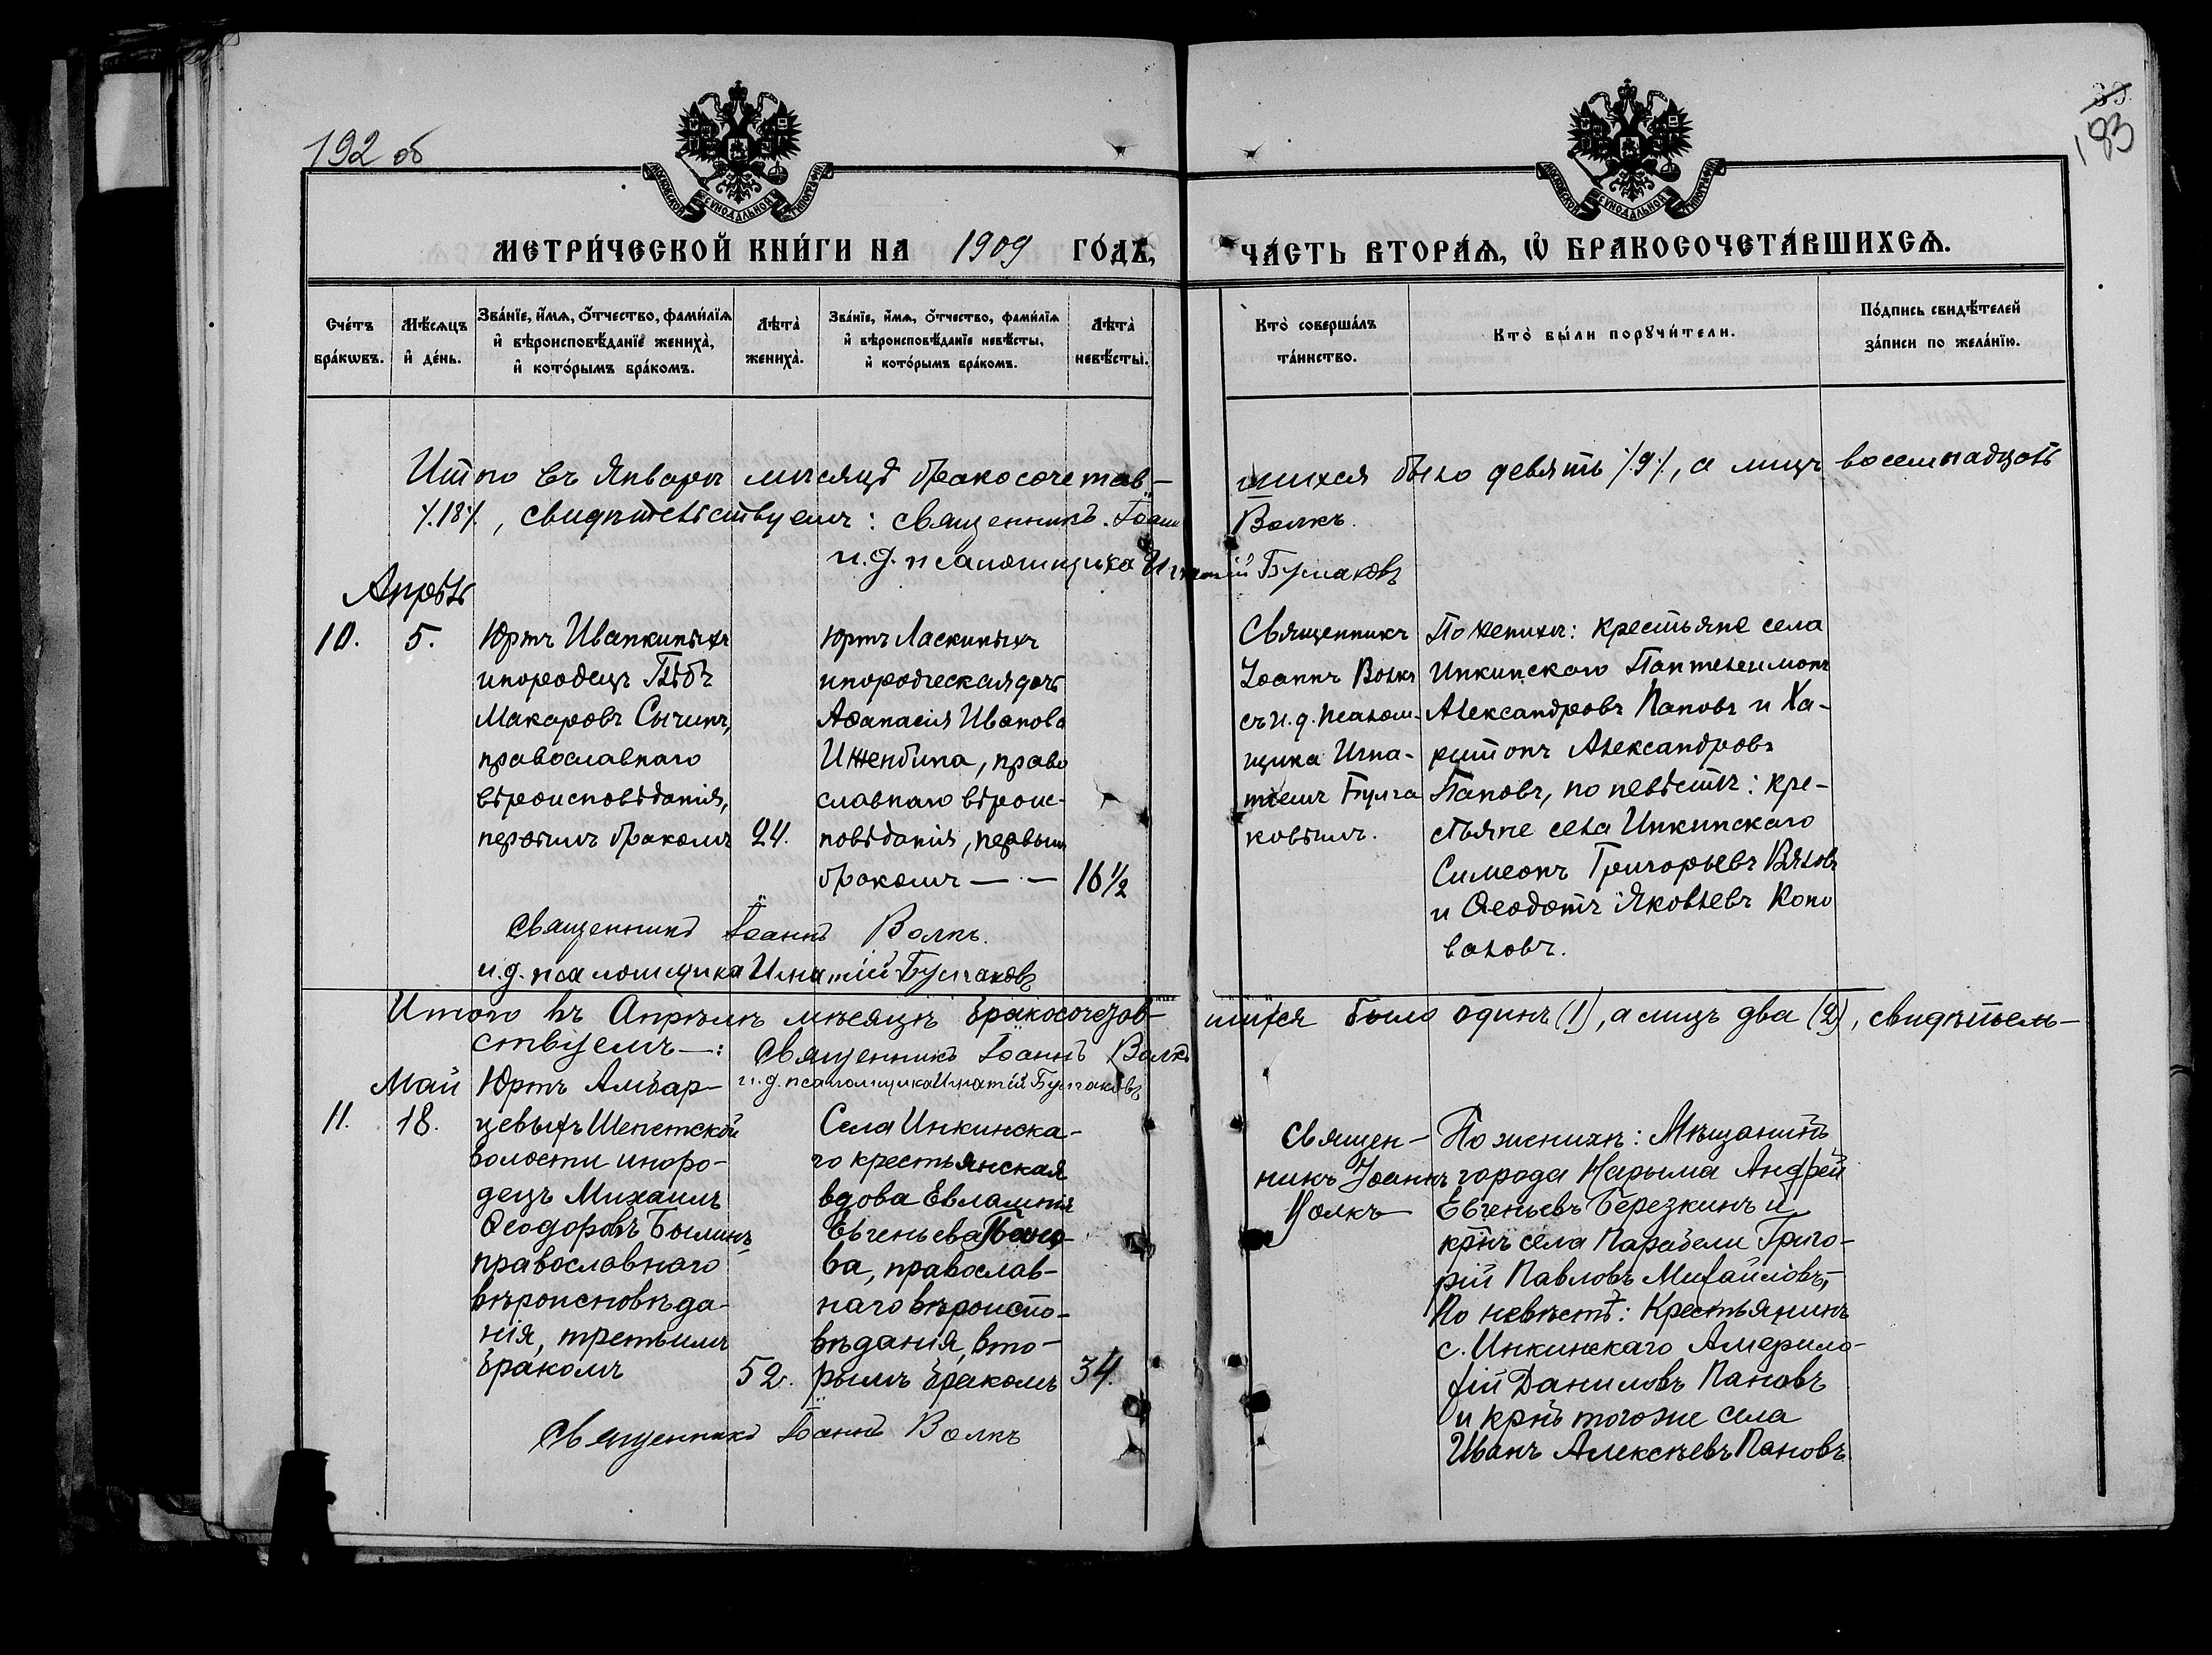 192 об
39.
183
МОСКОВСКОЙ СѴНОДАЛЬНОЙ ТИПОГРАФІИ
МОСКОВСКОЙ СѴНОДАЛЬНОЙ ТИПОГРАФІИ
МЕТРИ́ЧЕСКОЙ КНИ́ГИ НА 1909 ГО́ДЪ,
ЧА́СТЬ ВТОРА́Ѧ, Ѡ҆ БРАКОСОЧЕТА́ВШИХСѦ.
Сче́тъ
бра́кѡвъ.
Мѣ́сѧцъ
и҆ де́нь.
Зва́нїе, и҆́мѧ, ѻ҆́тчество, фамѝлїѧ
и҆ вѣроисповѣ́данїе жениха̀,
и҆ кото́рымъ бра́комъ.
Лѣта̀
жениха̀.
Зва́нїе, и҆́мѧ, ѻ҆́тчество, фамѝлїѧ
и҆ вѣроисповѣ́данїе невѣ́сты,
и҆ кото́рымъ бра́комъ.
Лѣта̀
невѣ́сты.
Кто̀ соверша́лъ
та́инство.
Кто̀ бы́ли порꙋчи́тели.
По́дпись свидѣ́телей
за́писи по жела́нїю.
Итого въ Январѣ мѣсяцѣ бракосочетав-
шихся было девять ⁒9⁒, а лицъ восемнадцать
⁒18⁒, свидѣтельствуемъ: Священникъ Іоаннъ Волкъ.
и.д. псаломщика Игнатій Булгаковъ
Апрѣль
10.
5.
Юртъ Иванкиныхъ
инородецъ Глѣбъ
Макаровъ Сычинъ,
православнаго
вѣроисповѣданія,
первымъ бракомъ
24.
Юртъ Ласкиныхъ
инородческая дочь
Аѳанасія Иванова
Иженбина, право
славнаго вѣроис-
повѣданія, первымъ
бракомъ — —
16½
Священникъ
Іоаннъ Волкъ
съ и.д. псалом-
щика Игна-
тіемъ Булга
ковымъ.
По женихѣ: крестьяне села
Инкинскаго Пантелеимонъ
Александровъ Пановъ и Ха-
ритонъ Александровъ
Пановъ, по невѣстѣ: кре-
стьяне села Инкинскаго
Симеонъ Григорьевъ Вяловъ
и Ѳеодотъ Яковлевъ Коно
валовъ.
Священникъ Іоаннъ Волкъ.
и.д. псаломщика Игнатій Булгаковъ
Итого въ Апрѣлѣ мѣсяцѣ бракосочетав-
шихся было одинъ (1), а лицъ два (2), свидѣтель-
ствуемъ —: Священникъ Іоаннъ Волкъ
и.д. псаломщика Игнатій Булгаковъ
Май
11.
18.
Юртъ Амбар-
цевыхъ Шепетской
волости иноро-
децъ Михаилъ
Ѳеодоровъ Былинъ
православнаго
вѣроисповѣда-
нія, третьимъ
бракомъ
52.
Села Инкинска-
го крестьянская
вдова Евлампія
Евгеньева Пано-
ва, православ-
наго вѣроиспо-
вѣданія, вто-
рымъ бракомъ
34.
Священ-
никъ Іоаннъ
Волкъ
По женихѣ: Мѣщанинъ
города Нарыма Андрей
Евгеньевъ Березкинъ и
крнъ села Парабели Григо-
рій Павловъ Михайловъ,-
По невѣстѣ: Крестьянинъ
с. Инкинскаго
Даниловъ Пановъ
и крнъ того же села
Иванъ Алексѣевъ Пановъ
Священникъ Іоаннъ Волкъ